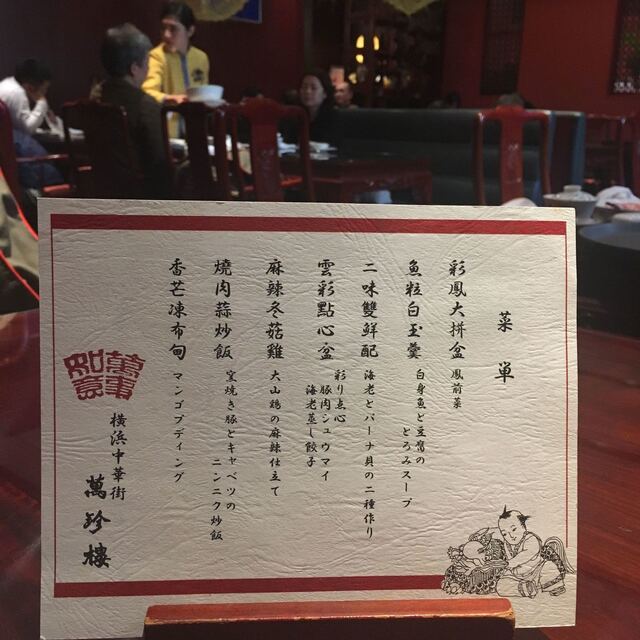 菜単
彩鳳大拼盆 鳳前菜
魚粒白玉羹 白身魚と豆腐の
とろみスープ
二味雙鮮配 海老とバーナ貝の二種作り
雲彩點心盆 彩り点心
豚肉シュウマイ
海老蒸し餃子
麻辣冬菇雞 大山鶏の麻辣仕立て
燒肉蒜炒飯 窯焼き豚とキャベツの
ニンニク炒飯
香芒凍布甸 マンゴプディング
萬事
如意
横浜中華街
萬珍樓